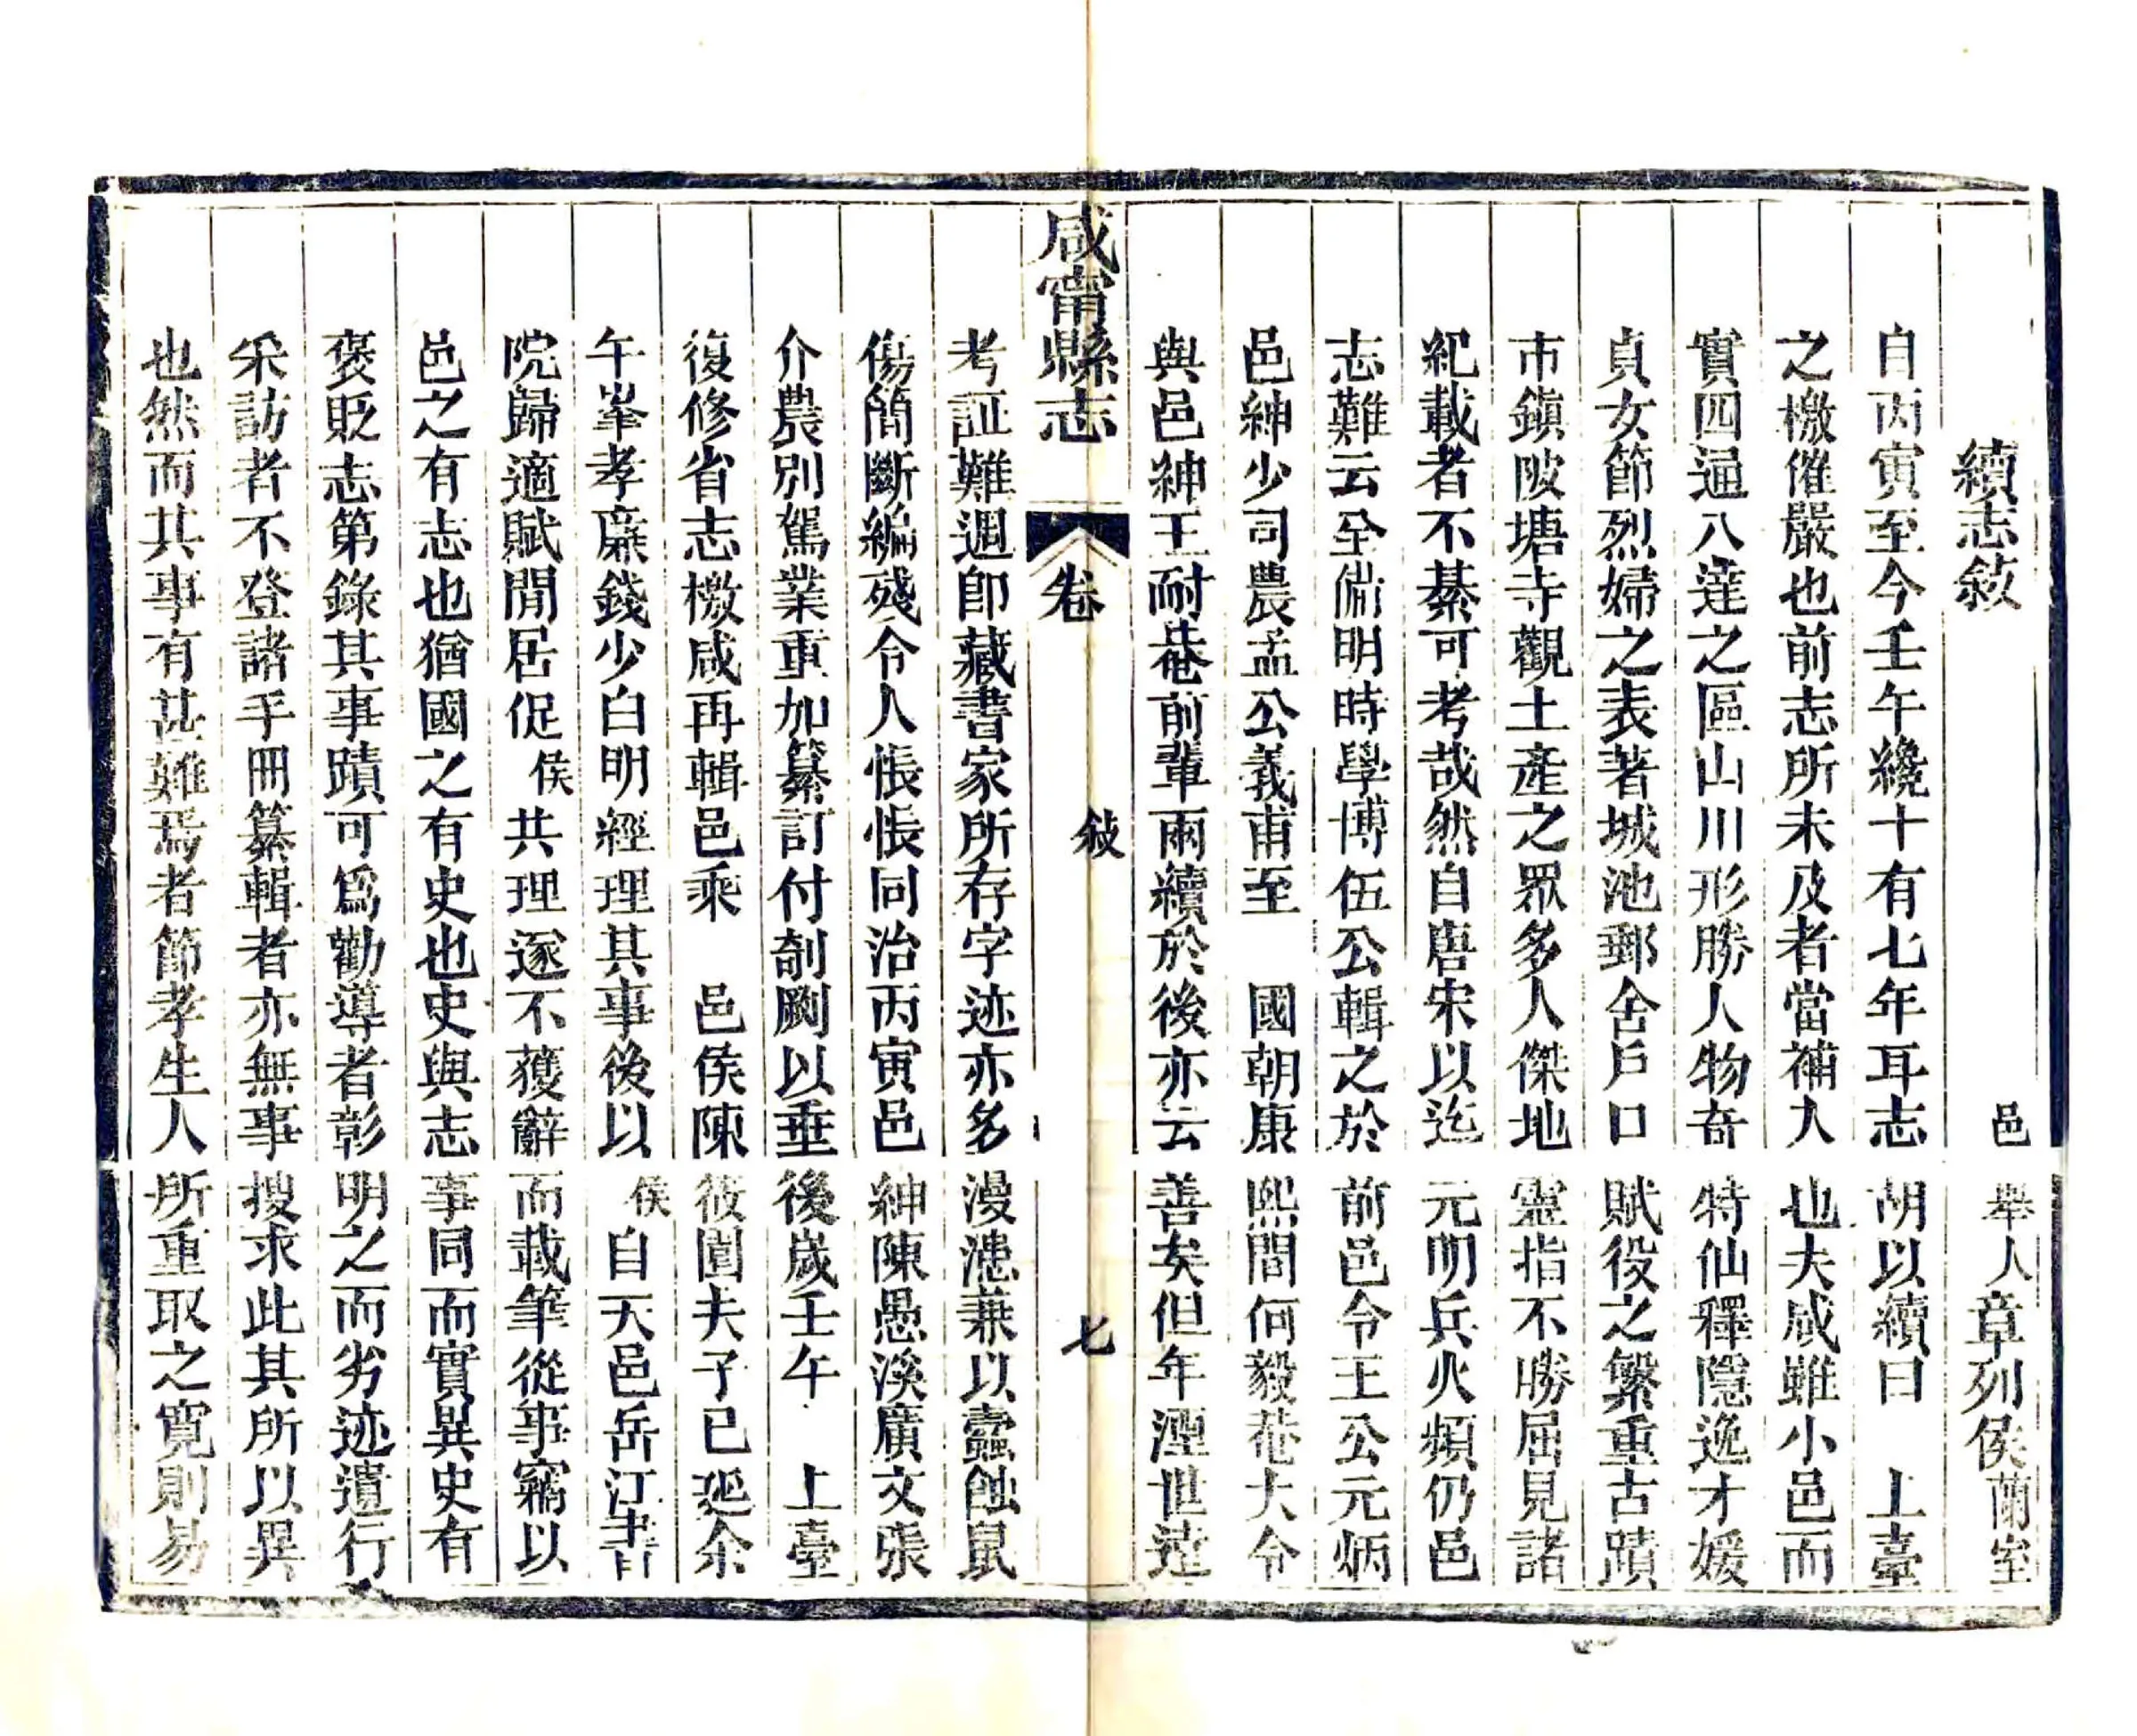 續志敍
邑舉人章列侯蘭室
自丙寅至今壬午纔十有七年耳志胡以續曰 上臺
之檄催嚴也前志所未及者當補人也夫咸雖小邑而
實四通八達之區山川形勝人物奇特仙釋隱逸才媛
貞女節烈婦之表著城池郵舍戶口賦役之繁重古蹟
市鎭陂塘寺觀土產之眾多人傑地靈指不勝屈見諸
紀載者不綦可考哉然自唐宋以迄元明兵火頻仍邑
志難云全備明時學博伍公輯之於前邑令王公元炳
邑紳少司農孟公義甫至 國朝康熙間何毅菴大令
與邑紳王耐菴前輩兩續於後亦云善矣但年湮世遠
咸甯縣志 卷 敍 七
考証難週卽藏書家所存字迹亦多漫漶兼以蠹蝕鼠
傷簡斷編殘令人悵悵同治丙寅邑紳陳愚溪廣文張
介農別駕業重加纂訂付剞劂以垂後歲壬午 上臺
復修省志檄咸再輯邑乘 邑侯陳筱園夫子已延余
午峯孝廉錢少白明經理其事後以侯自天邑岳汀書
院歸適賦閒居促侯共理遂不獲辭而載筆從事竊以
邑之有志也猶國之有史也史與志事同而實異史有
褒貶志第錄其事蹟可爲勸導者彰明之而劣迹遺行
采訪者不登諸手冊纂輯者亦無事搜求此其所以異
也然而其事有甚難焉者節孝生人所重取之寬則易